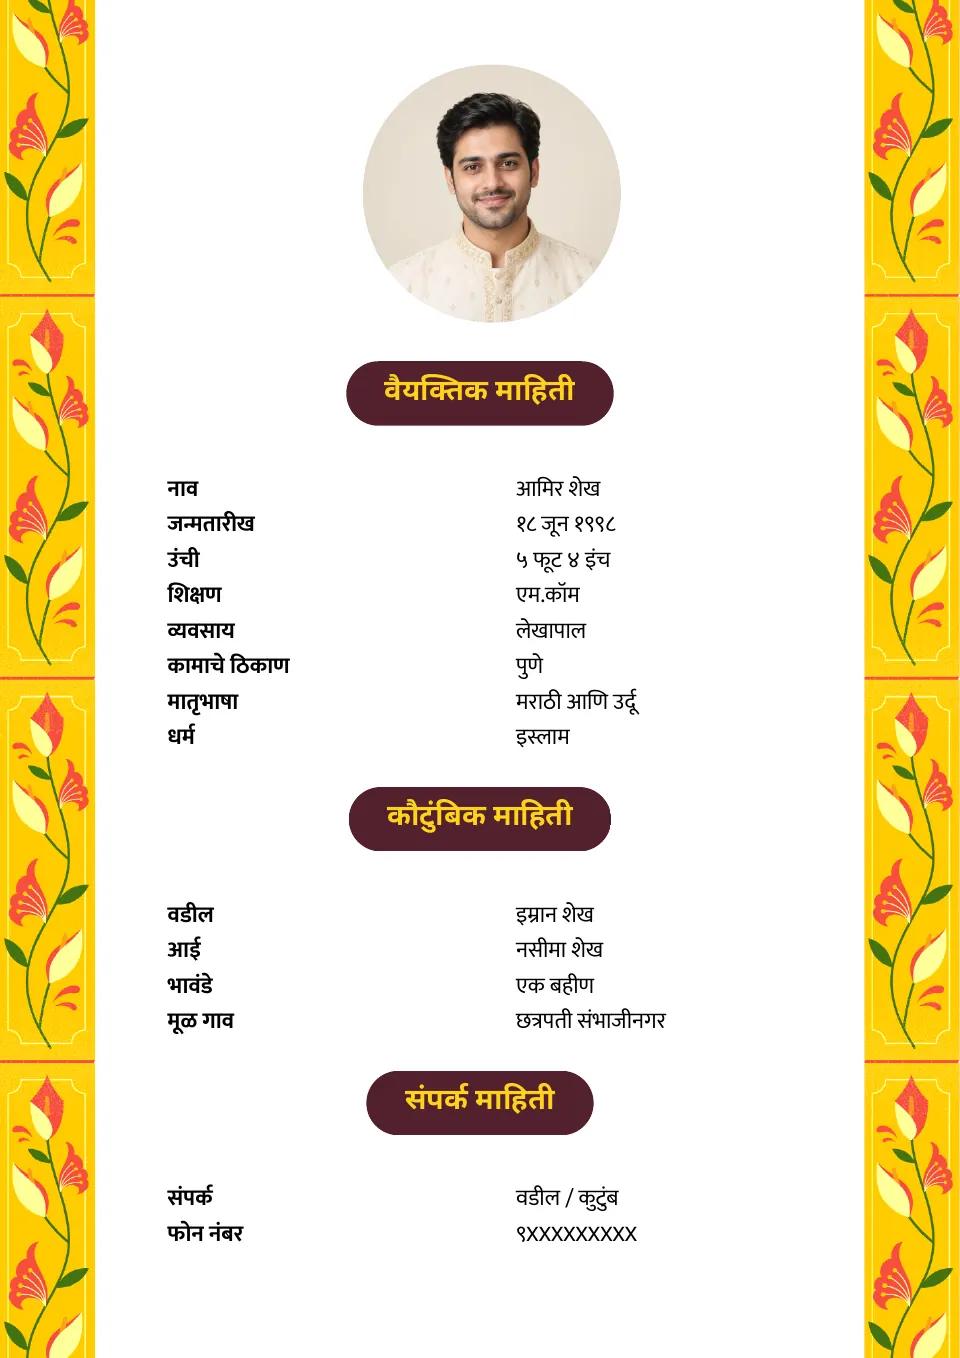 वैयक्तिक माहिती
नाव आमिर शेख
जन्मतारीख १८ जून १९९८
उंची ५ फूट ४ इंच
शिक्षण एम.कॉम
व्यवसाय लेखापाल
कामाचे ठिकाण पुणे
मातृभाषा मराठी आणि उर्दू
धर्म इस्लाम
कौटुंबिक माहिती
वडील इम्रान शेख
आई नसीमा शेख
भावंडे एक बहीण
मूळ गाव छत्रपती संभाजीनगर
संपर्क माहिती
संपर्क वडील / कुटुंब
फोन नंबर ९XXXXXXXXX